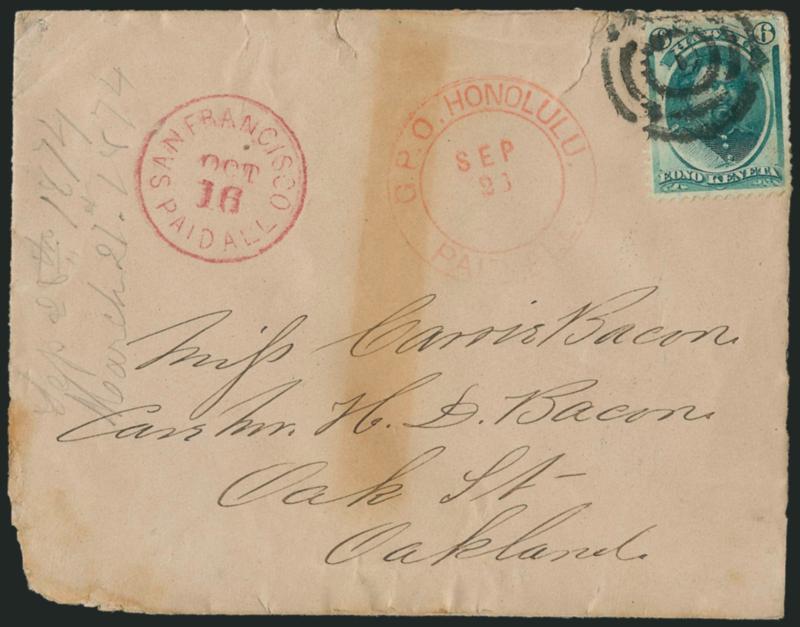 SAN FRANCISCO
OCT
16
PAID ALL
G.P.O. HONOLULU.
SEP
PAID ALL
6 6
EONO KENETA
Sep 1874
March 21st 1874
Miss Carrie Bacon
Care Mr. H. D. Bacon
Oak St
Oakland